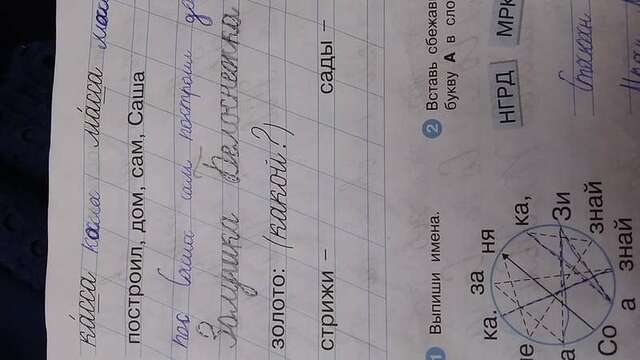 ка́сса касса ма́сса
построил, дом, сам, Саша
Саша сам построил до
Золушка Белоснежка
золото: (какой?)
стрижи – сады –
1 Выпиши имена.
2 Вставь сбежав
букву А в сло
НГРД МРК
за
ка. ня
ка,
Зи
Со знай
а знай